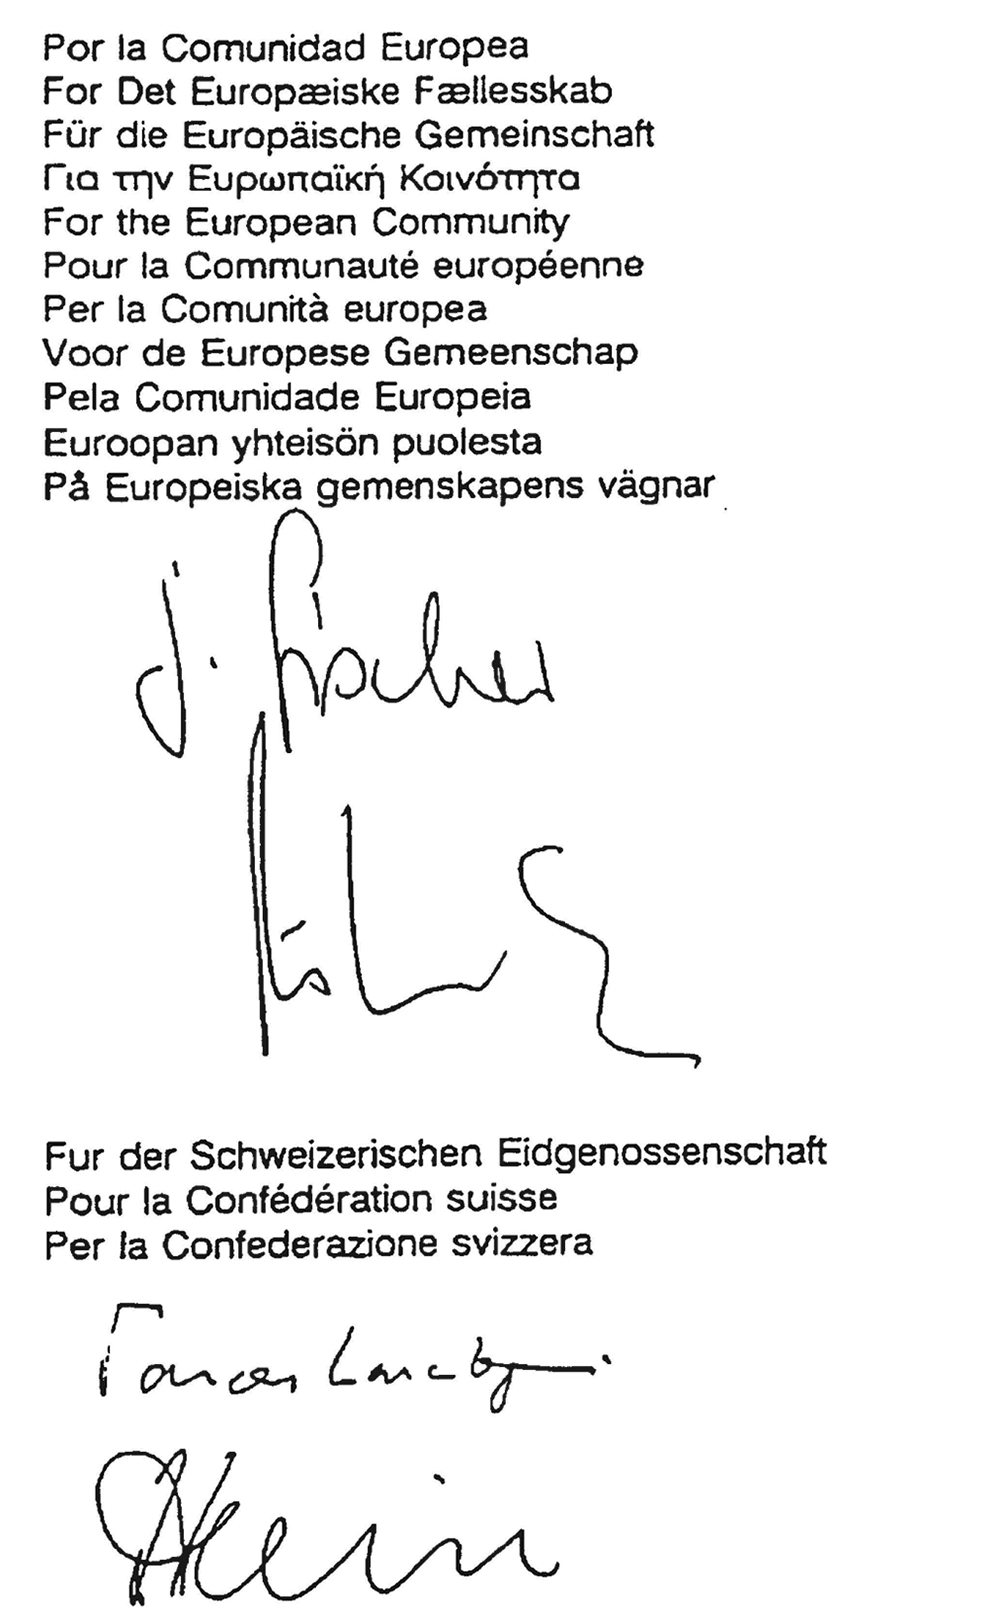 Por la Comunidad Europea
For Det Europæiske Fællesskab
Für die Europäische Gemeinschaft
Για την Ευρωπαϊκή Κοινότητα
For the European Community
Pour la Communauté européenne
Per la Comunità europea
Voor de Europese Gemeenschap
Pela Comunidade Europeia
Euroopan yhteisön puolesta
På Europeiska gemenskapens vägnar
J. Fischer
Fur der Schweizerischen Eidgenossenschaft
Pour la Confédération suisse
Per la Confederazione svizzera